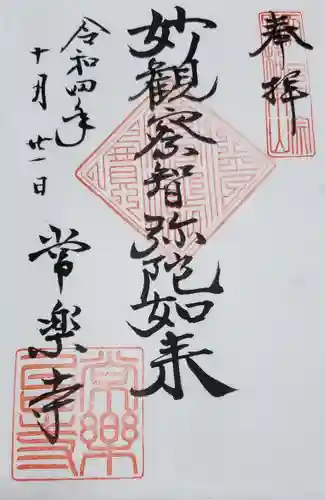 奉拝
妙観察智弥陀如来
令和四年
十月廿一日
常楽寺